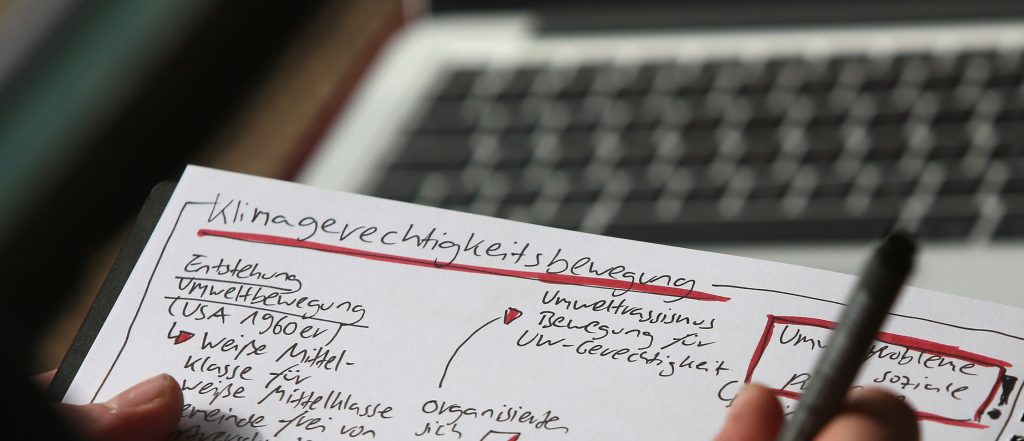 Klimagerechtigkeitsbewegung
Entstehung
Umweltbewegung
(USA 1960er)
↳ Weiße Mittel-
klasse für
weiße Mittelklasse
frei von
Umweltrassismus
Bewegung für
UW-Gerechtigkeit
organisierten
sich
soziale